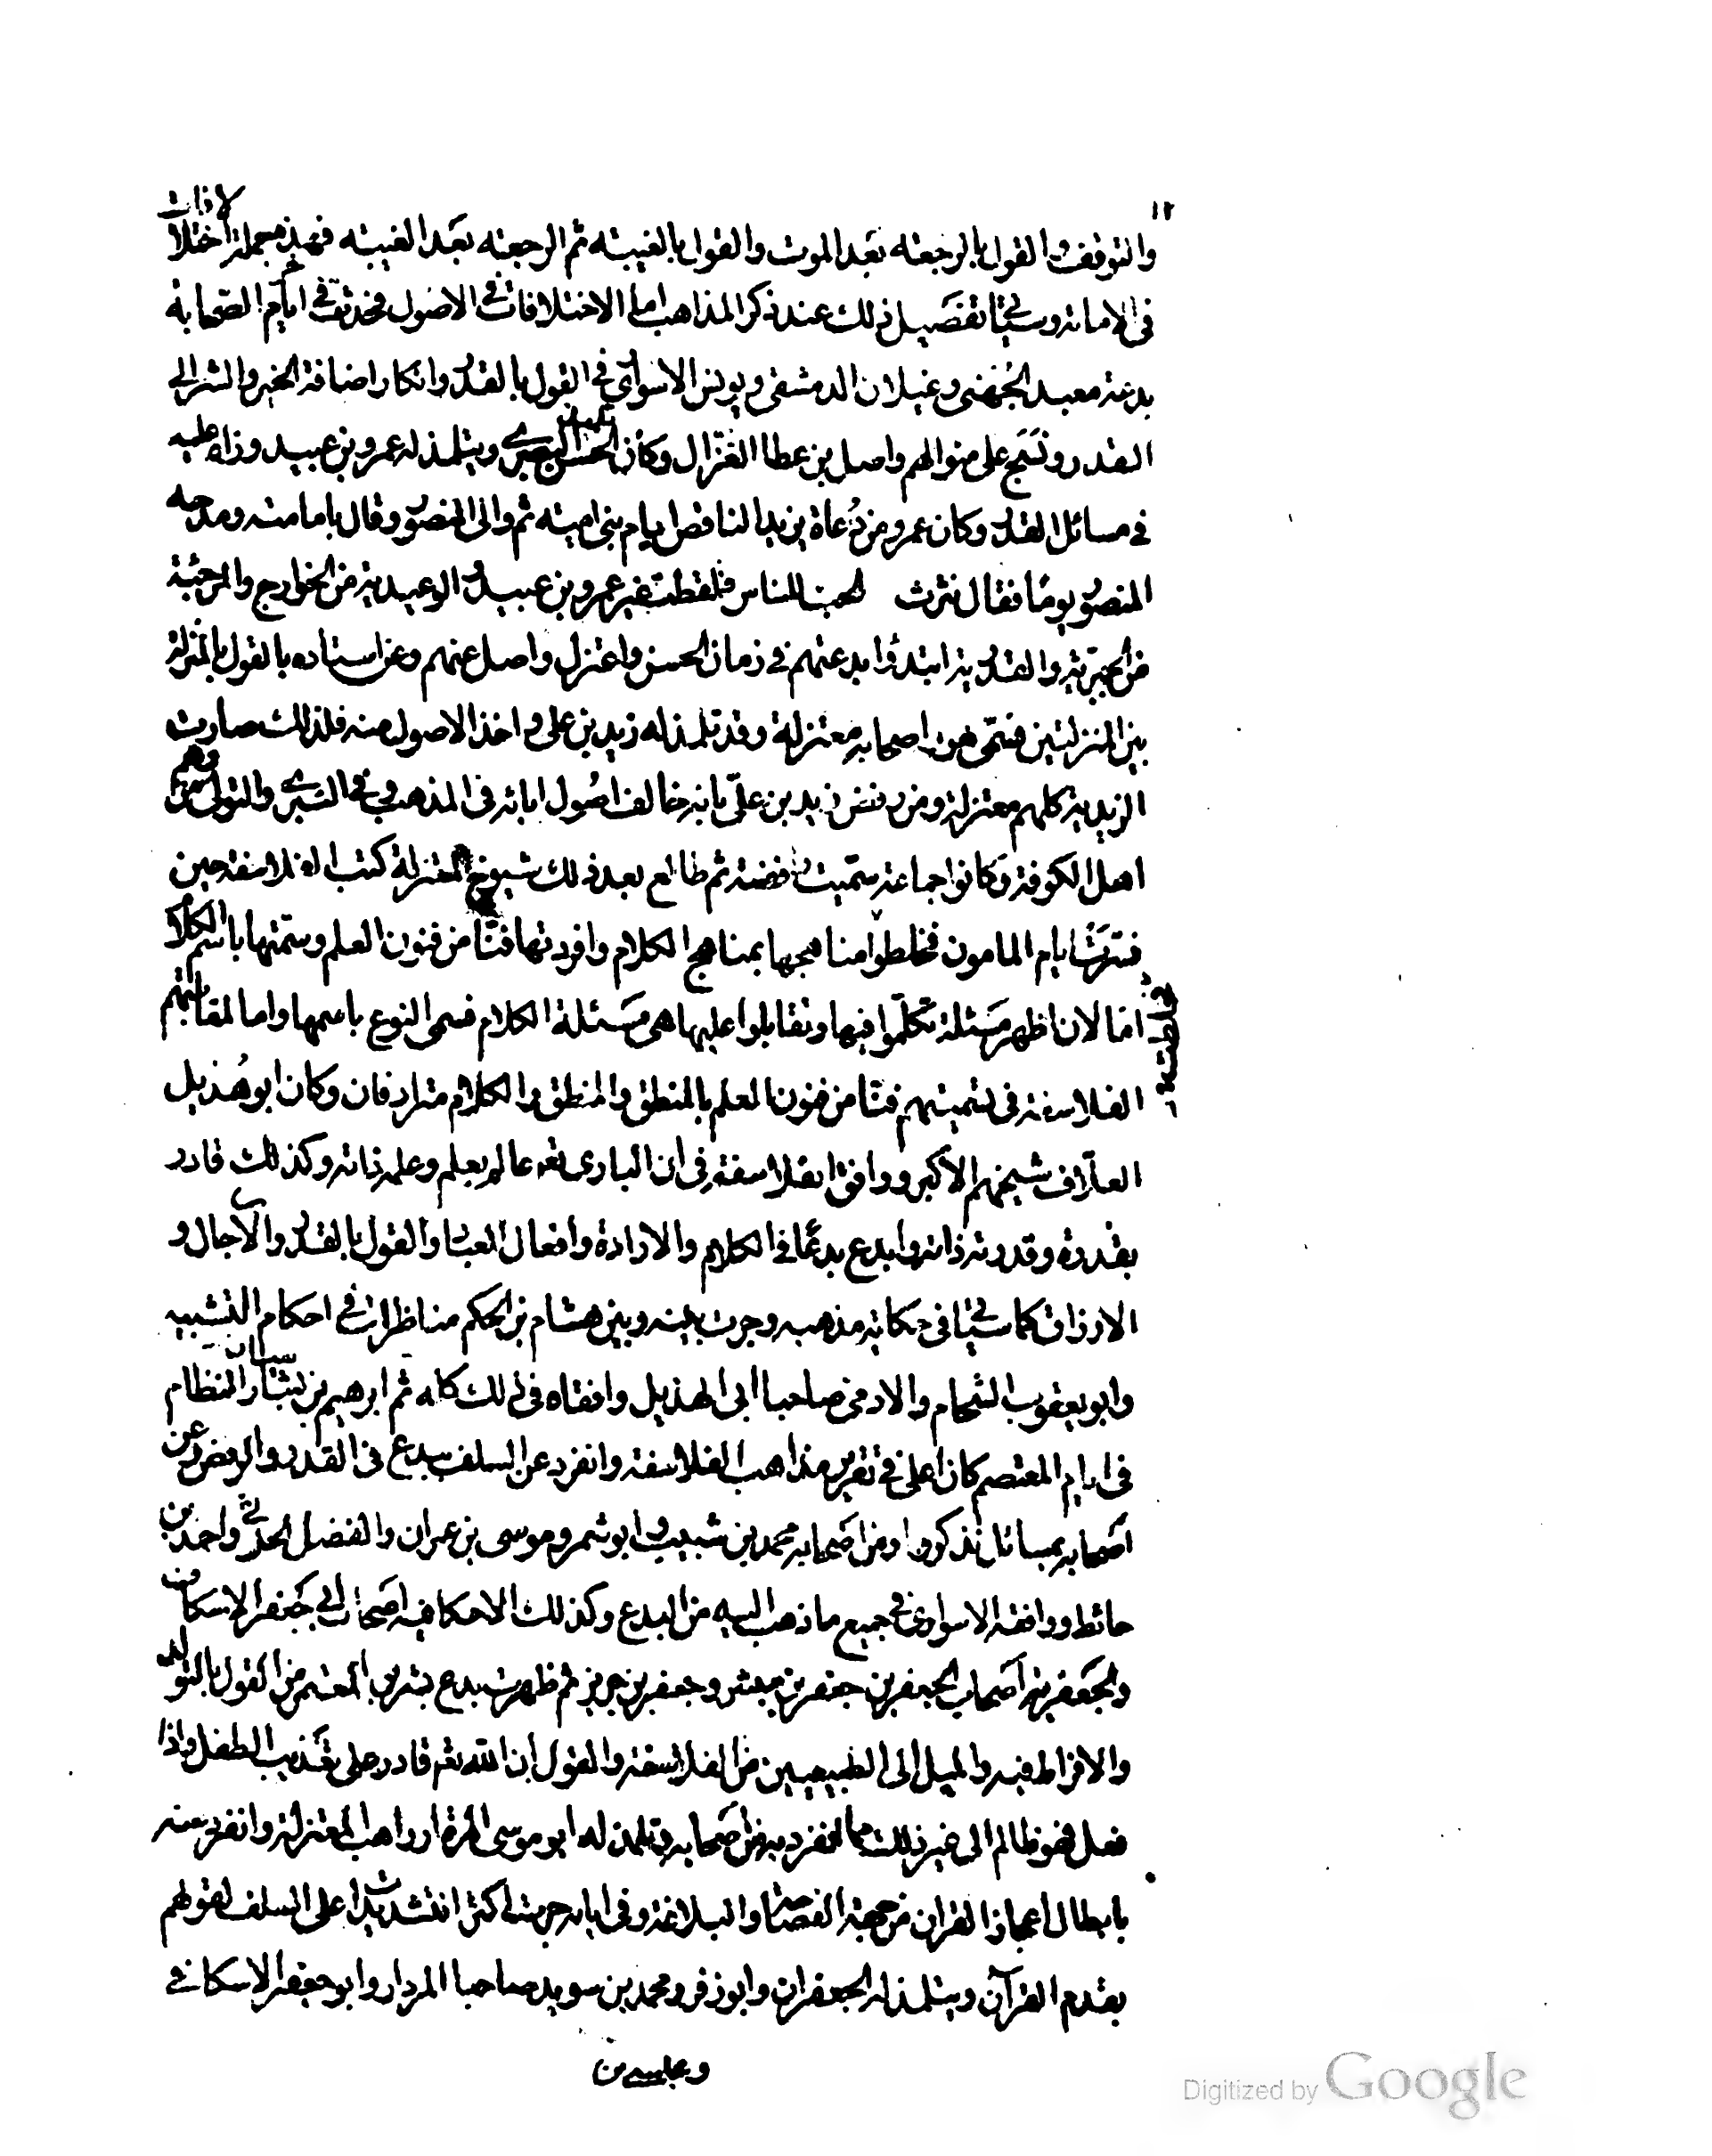 ١٢
والتوقف والقول بالرجعة بعد الموت والقول بالغيبة ثم الرجعة بعد الغيبة فهذه جملة اختلافات
في الامامة وسيأتي تفصيل ذلك عند ذكر المذاهب اما الاختلافات في الاصول فحدثت في ايام الصحابة
بدعة معبد الجُهَني وغيلان الدمشقي ويونس الاسواري في القول بالقدر وانكار اضافة الخير والشر الى
القدر ونَسَج على منوالهم واصل بن عطا الغزّال وكان تلميذ الحسن البصري ويتلمذ له عمرو بن عبيد وزاد عليه
في مسائل القدر وكان عمرو من دُعاة يزيد الناقص ايام بني امية ثم والى المنصور وقال بامامته ومدحه
المنصور يومًا فقال نثرت الحب للناس فلقطت غير عمرو بن عبيد والوعيدية من الخوارج والمرجئة
من الجبرية والقدرية ابتدؤا بدعتهم في زمان الحسن واعتزل واصل عنهم وعن استاده بالقول بالمنزلة
بين المنزلتين فسمّى هو واصحابه معتزلة وقد تلمذ له زيد بن علي واخذ الاصول منه فلذلك صارت
الزيدية كلهم معتزلة ومن رفض زيد بن عليّ بانه خالف اصُول ابائه في المذهب وفي التبري والتولي وهم من
اهل الكوفة وكانوا جماعة سمّيت رافضة ثم طالع بعد ذلك شيوخ المعتزلة كتب الفلاسفة حين
فسّرت ايام المامون فخلطوا مناهجها بمناهج الكلام وافردتها فنًّا من فنون العلم وسمتها باسم الكلام
امّا لان اظهر مَسئلة تكلّموا فيها وتقابلوا عليها هي مسَئلة الكلام فسمى النوع باسمها واما لمقابلتهم
الفلاسفة في تسميتهم فنّا من فنون العلم بالمنطق والمنطق والكلام مترادفان وكان ابو هُذيل
العلّاف شيخهم الأكبر ووافق الفلاسفة في ان الباري تعه عالم بعلم وعلمه ذاته وكذلك قادر
بقدرة وقدرته ذاته وابدع بدعًا في الكلام والارادة وافعال العباد والقول بالقدر والآجال و
الارزاق كما سيأتي في حكاية مذهبه وجرت بينه وبين هشام بن الحكم مناظرات في احكام التشبيه
وابو يعقوب الشحام والادمي صاحبا ابي الهذيل وافقاه في ذلك كله ثم ابرهيم بن سيار النظام
في ايام المعتصم كان اعلى في تقرير مذاهب الفلاسفة وانفرد عن السلف ببدع في القدر والرفض وعن
اصَحابه بمسائل نذكرها ومن اصَحابه محمد بن شبيب وابو شمر وموسى بن عمران والفضل الحدثي واحمد بن
حائط ووافقه الاسواري في جميع ما ذهب اليه من البدع وكذلك الاسكافية اصَحاب ابي جَعفر الاسكافي
والجَعفرية اصَحاب الجعفرين جعفر بن مبشر وجعفر بن حرب ثم ظهرت بدع بشر بن المعتمر من القول بالتولد
والافراط فيه والميل الى الطبيعيين من الفلاسفة والقول بان الله تعه قادر على تعَذيب الطفل واذا
فعل فهو ظالم الى غير ذلك مما انفرد به من اصَحابه وتلمذ له ابو موسى المردار راهب المعتزلة وانفرد عنه
بابطال اعجاز القران من جهة الفصاحة والبلاغة وفي ايامه جرت اكثر التشديدات على السلف لقولهم
بقدم القرآن ويتلمذ له الجعفران وابو زفر ومحمد بن سويد صاحبا المردار وابو جعفر الاسكافي
وعيسى بن
Digitized by Google